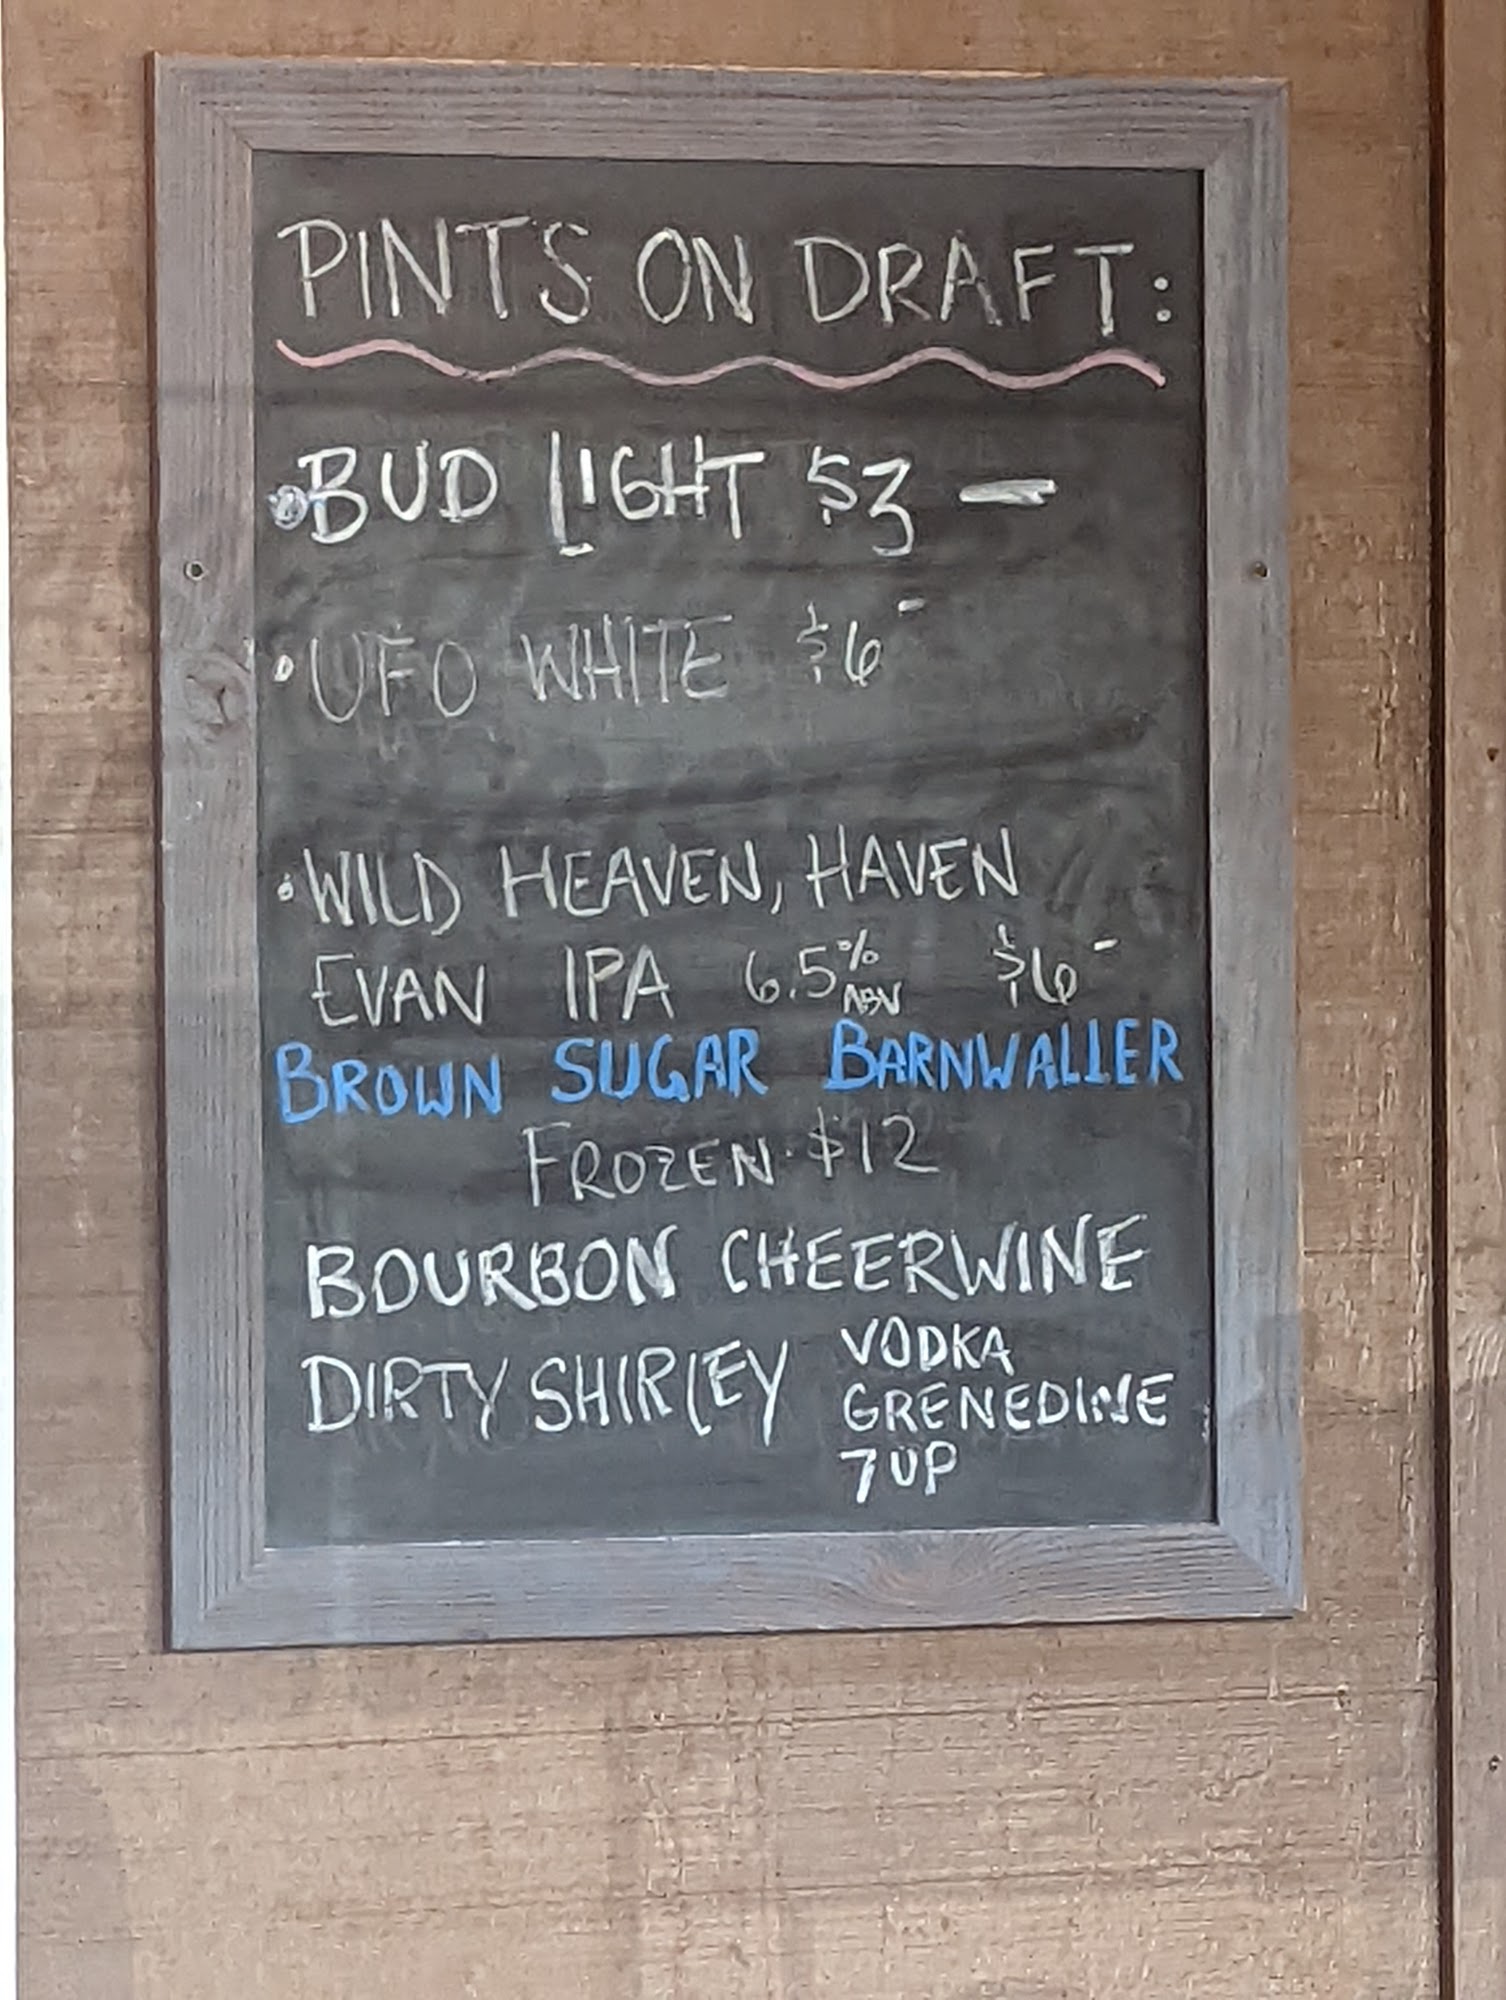 PINTS ON DRAFT:
• BUD LIGHT $3 –
• UFO WHITE $6 -
• WILD HEAVEN, HAVEN
EVAN IPA 6.5% ABV $6 -
BROWN SUGAR BARNWALLER
FROZEN · $12
BOURBON CHEERWINE
DIRTY SHIRLEY VODKA
GRENEDINE
7UP